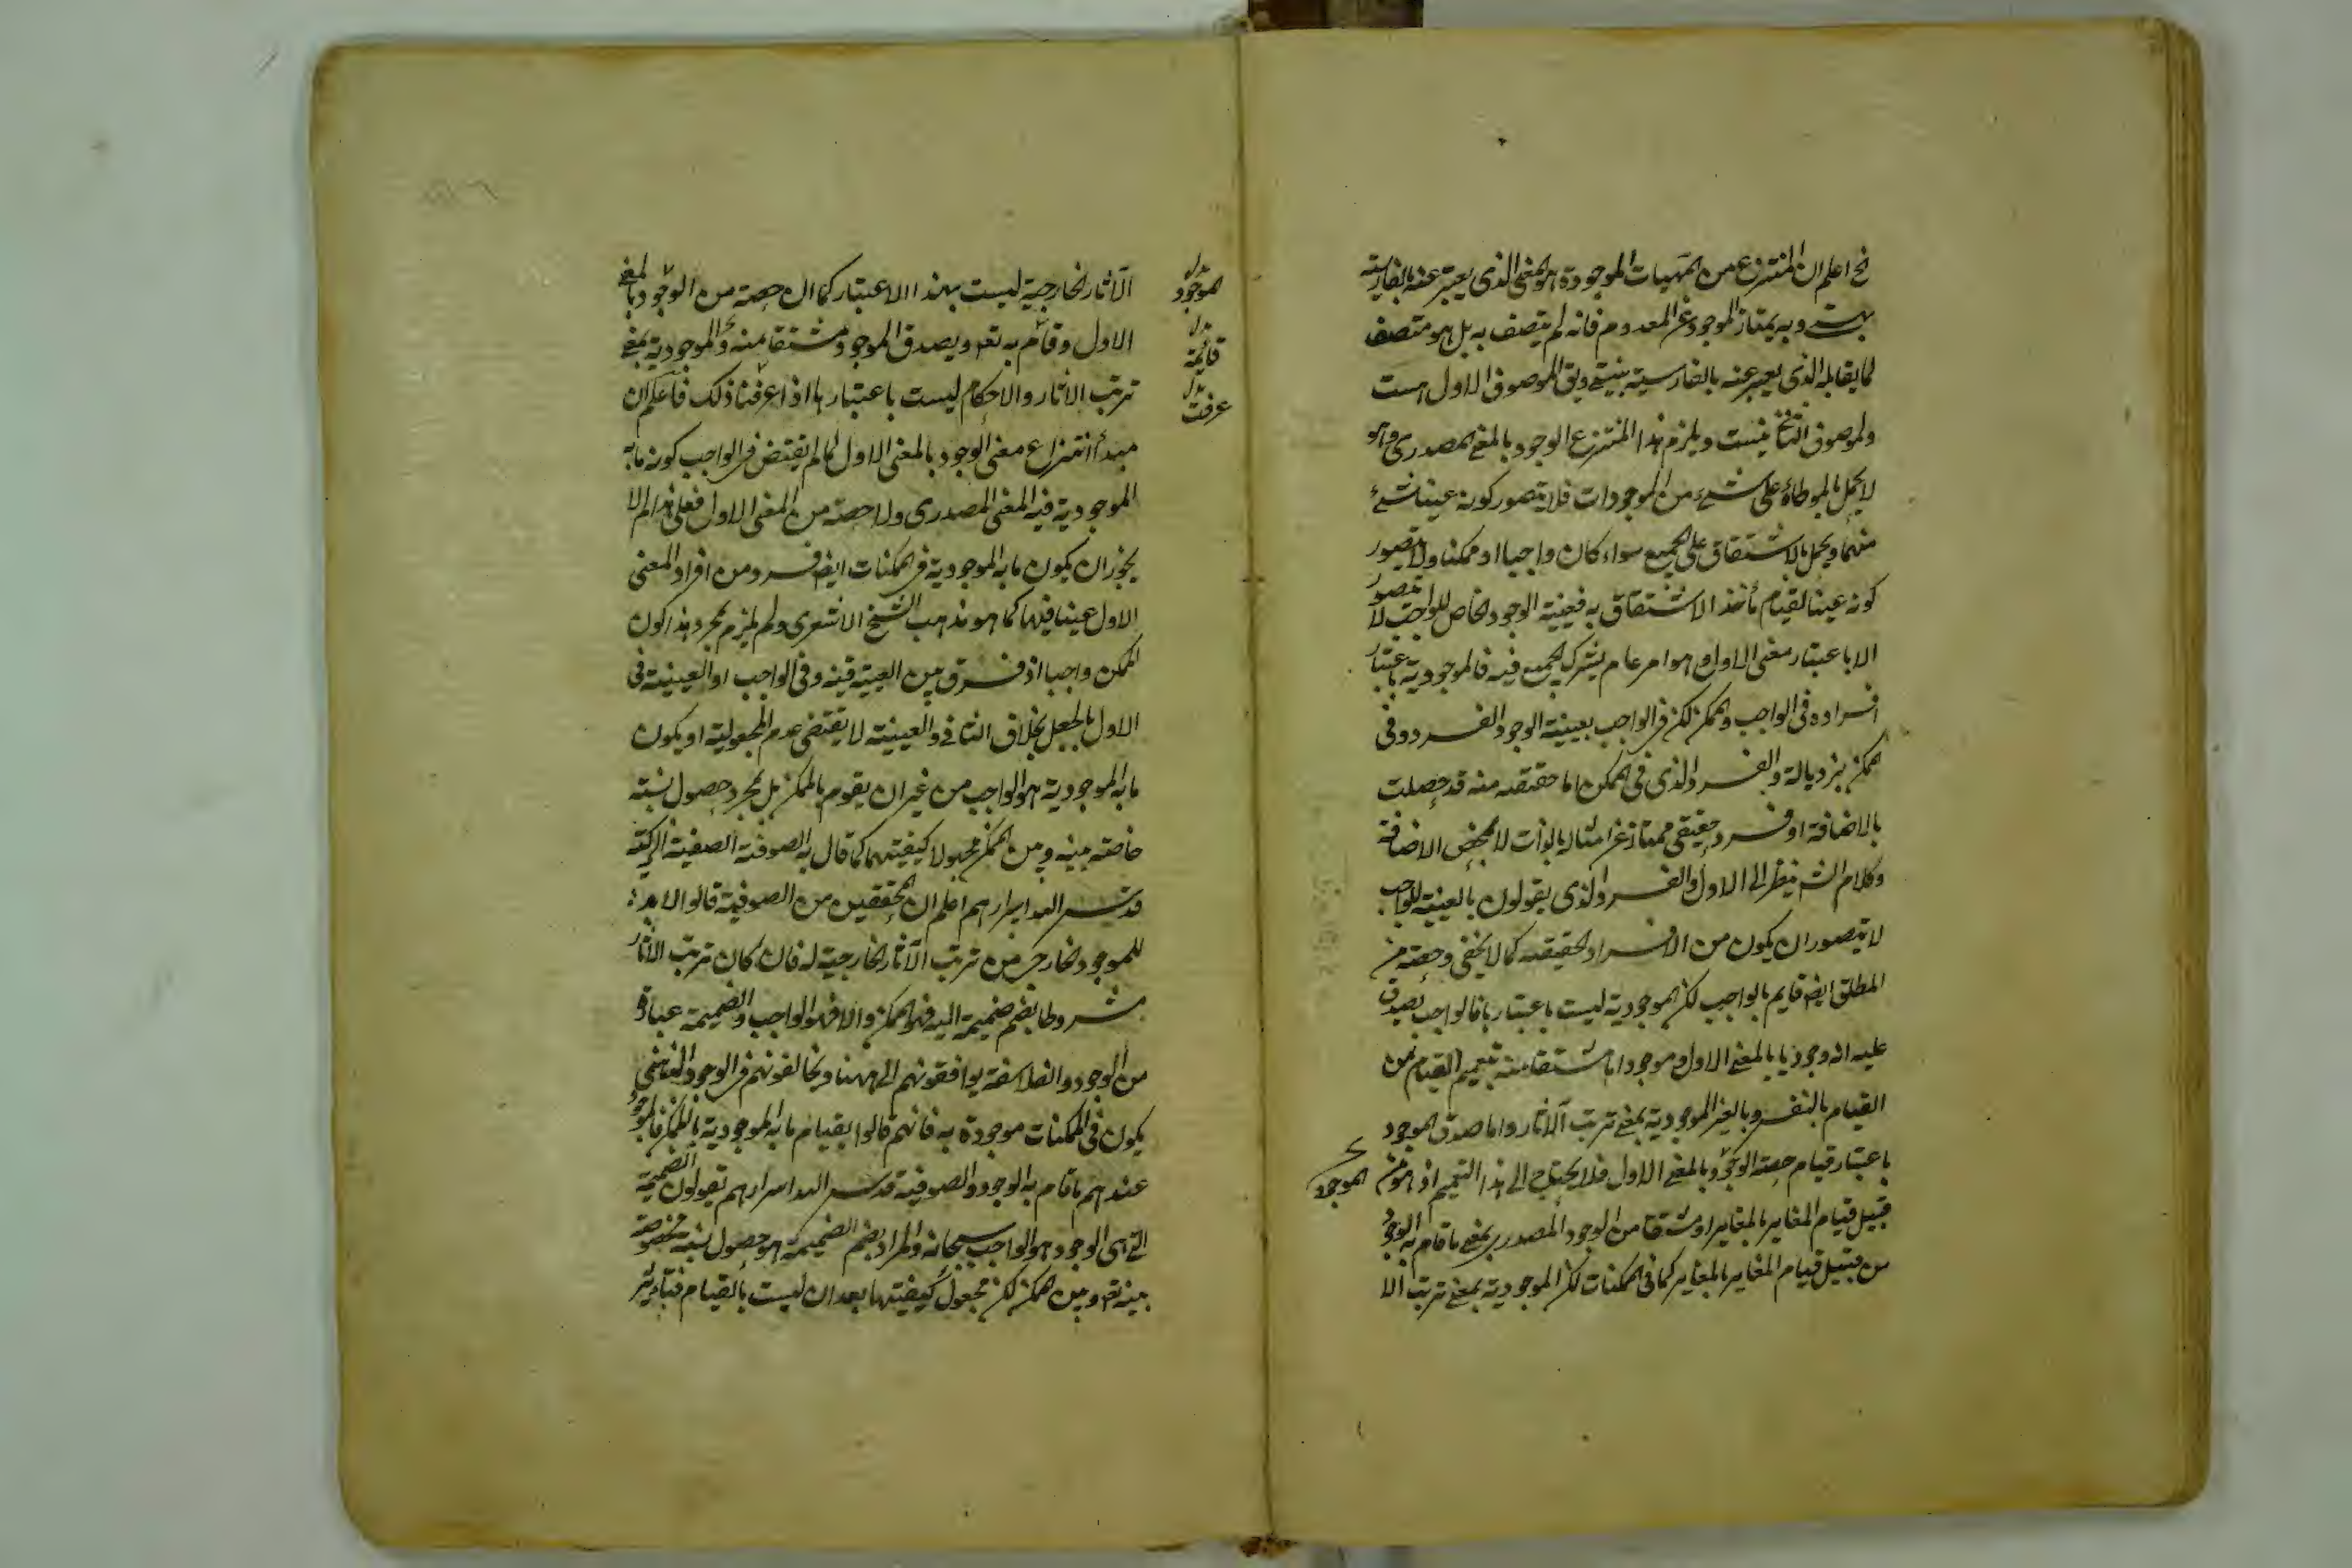 نح اعلم ان المنتزع من المهيات الموجودة هو المعنى الذى يعبر عنه بالفارسية
بهست وبه يمتاز الموجود عن المعدوم فانه لم يتصف به بل هو متصف
لما يقابله الذى يعبر عنه بالفارسية بنيستى ويق الموصوف الاول هست
ولموصوف الثانى نيست ويلزم هذا المنتزع الوجود بالمعنى المصدرى وهو
لا يحمل بالمواطاة على شئ من الموجودات فلا يتصور كونه عينا لشئ
منهما ويحمل بالاشتقاق على الجميع سواء كان واجبا او ممكنا ولا يتصور
كونه عينا لقيام مأخذ الاشتقاق به فعينية الوجود الخاص للواجب لا يتصور
الا باعتبار معنى الاول وهو امر عام يشترك الجميع فيه فالموجودية باعتبار
افراده فى الواجب والممكن لكن فى الواجب بعينية الوجود الفرد وفى
الممكن بزيادته والفرد الذى فى الممكن اما حقيقته منه قد حصلت
بالاضافة او فرد حقيقى ممتاز عن امثاله بالذات لا بمحض الاضافة
وكلام الش ينظر الى الاول والفرد الذى يقولون بالعينية للواجب
لا يتصور ان يكون من الافراد الحقيقية كما لا يخفى وحصته من
المطلق ايض قايم بالواجب لكن الموجودية ليست باعتبارها فالواجب يصدق
عليه انه وجود بالمعنى الاول وموجود مشتقا منه بتعميم القيام من
القيام بالنفس وبالغير الموجودية بمعنى ترتب الآثار واما صدق الموجود
باعتبار قيام حصة الوجود بالمعنى الاول فلا يحتاج الى هذا التعميم اذ هو من
الموجود
قبيل قيام المغاير بالمغاير او مشتقا من الوجود المصدرى بمعنى ما قام به الوجود
من قبيل قيام المغاير بالمغاير كما فى الممكنات لكن الموجودية بمعنى ترتب الا
الآثار الخارجية ليست بهذا الاعتبار كما ان حصة من الوجود بالمعنى
الموجود
الاول وقائم به تعم ويصدق الموجود مشتقا منه والموجودية بمعنى
قائمة
ترتب الاثار والاحكام ليست باعتبارها اذا عرفنا ذلك فاعلم ان
عرفت
مبدأ انتزاع معنى الوجود بالمعنى الاول كما لم يقتض فى الواجب كونه ما به
الموجودية فيه المعنى المصدرى ولا حصة من المعنى الاول فعلى هذا لم لا
يجوز ان يكون ما به الموجودية فى الممكنات ايض فرد من افراد المعنى
الاول عينا فيها كما هو مذهب الشيخ الاشعرى ولم يلزم بمجرد هذا كون
الممكن واجبا اذ فرق بين العينية فيه وفى الواجب او العينية فى
الاول بالجعل بخلاف الثانى والعينية لا يقتضى عدم المجعولية او يكون
ما به الموجودية هو الواجب من غير ان يقوم بالممكن بل بمجرد حصول نسبة
خاصة بينه وبين الممكن مجهولا كيفيتهما كما قال به الصوفية الصفية الزكية
قدس الله اسرارهم اعلم ان المحققين من الصوفية قالوا لا بد
للموجود الخارجى من ترتب الآثار الخارجية له فان كان ترتب الآثار
مشروطا بضم ضميمة اليه فهو الممكن والا فهو الواجب والضميمة عبارة
من الوجود والفلاسفة يوافقونهم الى ههنا ويخالفونهم فى الوجود الذى
يكون فى الممكنات موجودة به فانهم قالوا بقيام ما به الموجودية بالممكن فالموجود
عندهم ما قام به الوجود والصوفية قدس الله اسرارهم يقولون الضميمة
التى هى الوجود هو الواجب سبحانه والمراد بضم الضميمة هو حصول نسبة مخصوصة
بينه تعم وبين الممكن لكن مجعول كيفيتها بعد ان ليست بالقيام فتأثير